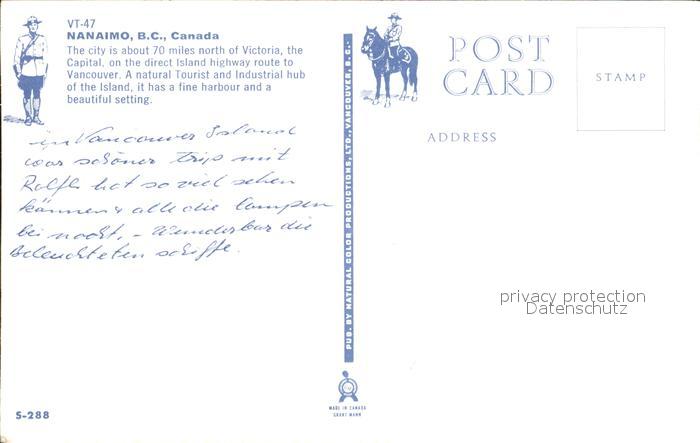 VT-47
NANAIMO, B.C., Canada
The city is about 70 miles north of Victoria, the
Capital, on the direct Island highway route to
Vancouver. A natural Tourist and Industrial hub
of the Island, it has a fine harbour and a
beautiful setting.
in Vancouver Island
war schöner trip mit
hat so viel sehen
können & alle die Lampen
bei nacht, - Wunderbar die
Beleuchteten schiffe.
S-288
PUB. BY NATURAL COLOR PRODUCTIONS, LTD., VANCOUVER, B. C.
MADE IN CANADA
GRANT MANN
POST
CARD
STAMP
ADDRESS
privacy protection
Datenschutz